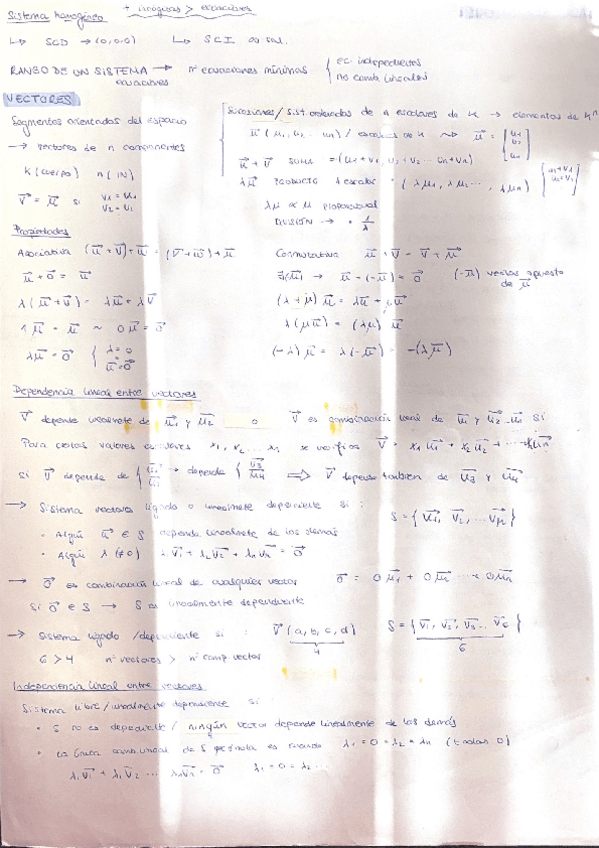 + incógnitas > ecuaciones
Sistema homogéneo
↳ SCD → (0,0,0) ↳ SCI ∞ sol.
RANGO DE UN SISTEMA → nº ecuaciones mínimas { ec. independientes
ecuaciones no comb. lineales
VECTORES
Segmentos orientados del espacio
→ vectores de n componentes
K (cuerpo) n (IN)
v = u si v1 = u1
v2 = u2
Sucesiones / sist ordenadas de n escalares de K → elementos de K^n
u (u1, u2 ... un) / escalares de K ~> u =
u + v SUMA = (u1 + v1, u2 + v2 ... un + vn)
λu PRODUCTO λ escalar = (λu1, λu2 ... λun)
λu ∝ u proporcional
DIVISIÓN → · 1/λ
Propiedades
Asociativa (u + v) + w = (v + w) + u Conmutativa u + v = v + u
u + 0 = u ∃(-u) → u - (-u) = 0 (-u) vector opuesto de u
λ(u + v) = λu + λv (λ + μ) u = λu + μu
1u = u ~ 0u = 0 λ(μu) = (λμ) u
λu = 0 { λ = 0 (-λ) u = λ(-u) = -(λu)
u = 0
Dependencia lineal entre vectores
v depende linealmente de u1 y u2 o v es combinación lineal de u1 y u2 ... un si
Para ciertos valores escalares x1, x2 ... xn se verifica v = x1u1 + x2u2 + ... xnun
Si v depende de { u1 → depende { u3 ⟹ v depende también de u3 y u4
u2 u4
→ Sistema vectores ligado o linealmente dependiente si : S = {u1, v2, ... vn}
· Algún u ∈ S depende linealmente de los demás
· Algún λ (≠0) λ1v1 + λ2v2 + λnvn = 0
→ 0 es combinación lineal de cualquier vector 0 = 0u1 + 0u2 ... + 0un
Si 0 ∈ S → S es linealmente dependiente
→ Sistema ligado / dependiente si : v (a, b, c, d) S = {v1, v2, v3 ... v6}
4 6
6 > 4 nº vectores > nº comp. vector
Independencia lineal entre vectores
Sistema libre / linealmente dependiente si
· S no es dependiente / ningún vector depende linealmente de los demás
· la única comb. lineal de S es cuando λ1 = 0 = λ2 = λn (todos 0)
λ1v1 + λ1v2 ... λnvn = 0 λ1 = 0 = λ2 ...